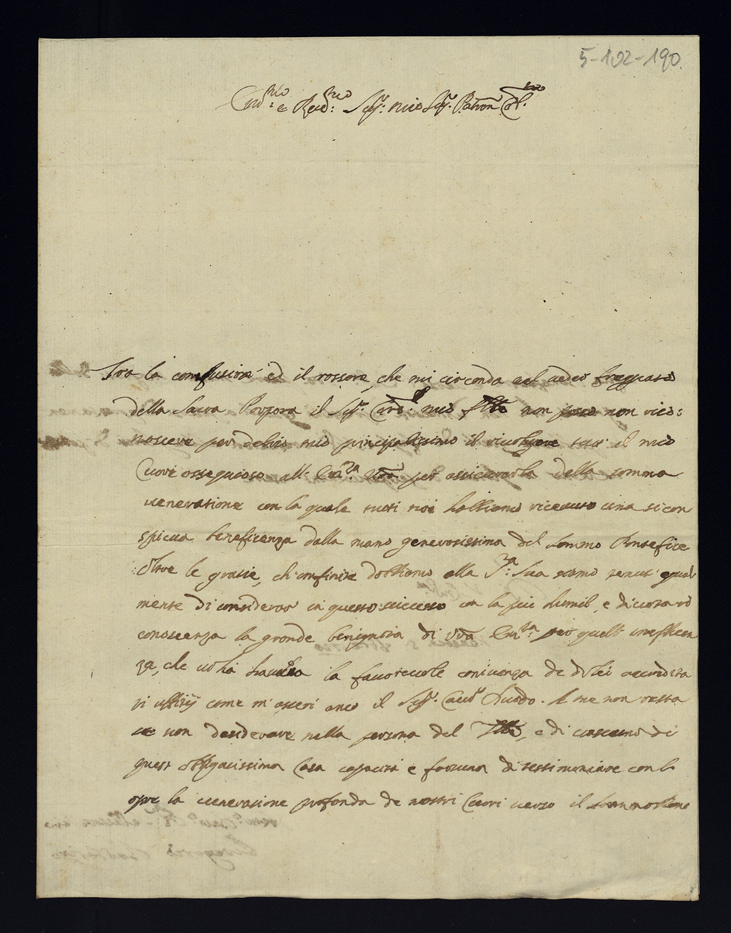 5-102-190.
Em:mo e Rev:mo Sig:r mio Sig:r Patron Col:mo
Tra la confusione ed il rossore, che mi circonda nel veder freggiato
della Sacra Porpora il Sig:r Card: mio non posso non rico:
noscere per debito mio principalissimo il rivolgere tutto il mio
Cuore ossequioso all' Em:za V:ra per assicurarla della somma
veneratione con la quale tutti noi habbiamo ricevuto una si con
spicua beneficenza dalla mano generosissima del Sommo Pontefice
Oltre le gratie, ch' infinite dobbiamo alla S:tà Sua siamo tenuti qual
mente di considerar in questo successo con la più humile, e di cuore ri
conoscenza la grande benignità di V:ra Em:za per quell'
za, che vi hà havuta la favorevole di Lei accordata
vi ufficij come m' asserì anco il Sig:r Cav:r Duodo. A me non resta
se non desiderare nella persona del e di ciascuno di
quest' obligatissima Casa capacità e fortuna di testimoniare con l'
opre la veneratione profonda de nostri Cuori verso il